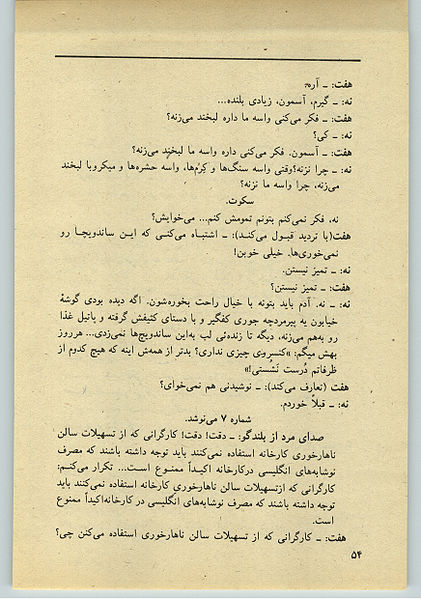 هفت: ـ آره؟
نه: ـ گیرم، آسمون، زیادی بلنده...
هفت: ـ فکر می‌کنی واسه ما داره لبخند می‌زنه؟
نه: ـ کی؟
هفت: ـ آسمون. فکر می‌کنی داره واسه ما لبخند می‌زنه؟
نه: ـ چرا نزنه؟ وقتی واسه سنگ‌ها و کِرم‌ها، واسهٔ حشره‌ها و میکروبا لبخند
می‌زنه، چرا واسه ما نزنه؟
سکوت.
نه، فکر نمی‌کنم بتونم تمومش کنم... می‌خوایش؟
هفت(با تردید قبول می‌کند): ـ اشتباه می‌کنی که این ساندویچا رو
نمی‌خوری‌ها. خیلی خوبن!
نه: ـ تمیز نیستن.
هفت: ـ تمیز نیستن؟
نه: ـ نه. آدم باید بتونه با خیال راحت بخوره‌شون. اگه دیده بودی گوشهٔ
خیابون یه پیرمردچه جوری کفگیر و با دستای کثیفش گرفته و پاتیل غذا
رو به‌هم می‌زنه، دیگه تا زنده‌ئی لب به‌این ساندویچ‌ها نمی‌زدی... هرروز
بهش میگم: «کنسروی چیزی نداری؟ بدتر از همه‌ش اینه که هیچ کدوم از
ظرفاتم دُرست نَشُستی!»
هفت (تعارف می‌کند): ـ نوشیدنی هم نمی‌خوای؟
نه: ـ قبلاً خوردم.
شماره ۷ می‌نوشد.
صدای مرد از بلندگو: ـ دقت! دقت! کارگرانی که از تسهیلات سالن
ناهارخوری کارخانه استفاده نمی‌کنند باید توجه داشته باشند که مصرف
نوشابه‌های انگلیسی درکارخانه اکیداً ممنوع است... تکرار می‌کنم:
کارگرانی که ازتسهیلات سالن ناهارخوری کارخانه استفاده نمی‌کنند باید
توجه داشته باشند که مصرف نوشابه‌های انگلیسی در کارخانه‌اکیداً ممنوع
است.
هفت: ـ کارگرانی که از تسهیلات سالن ناهارخوری استفاده می‌کنن چی؟
۵۴